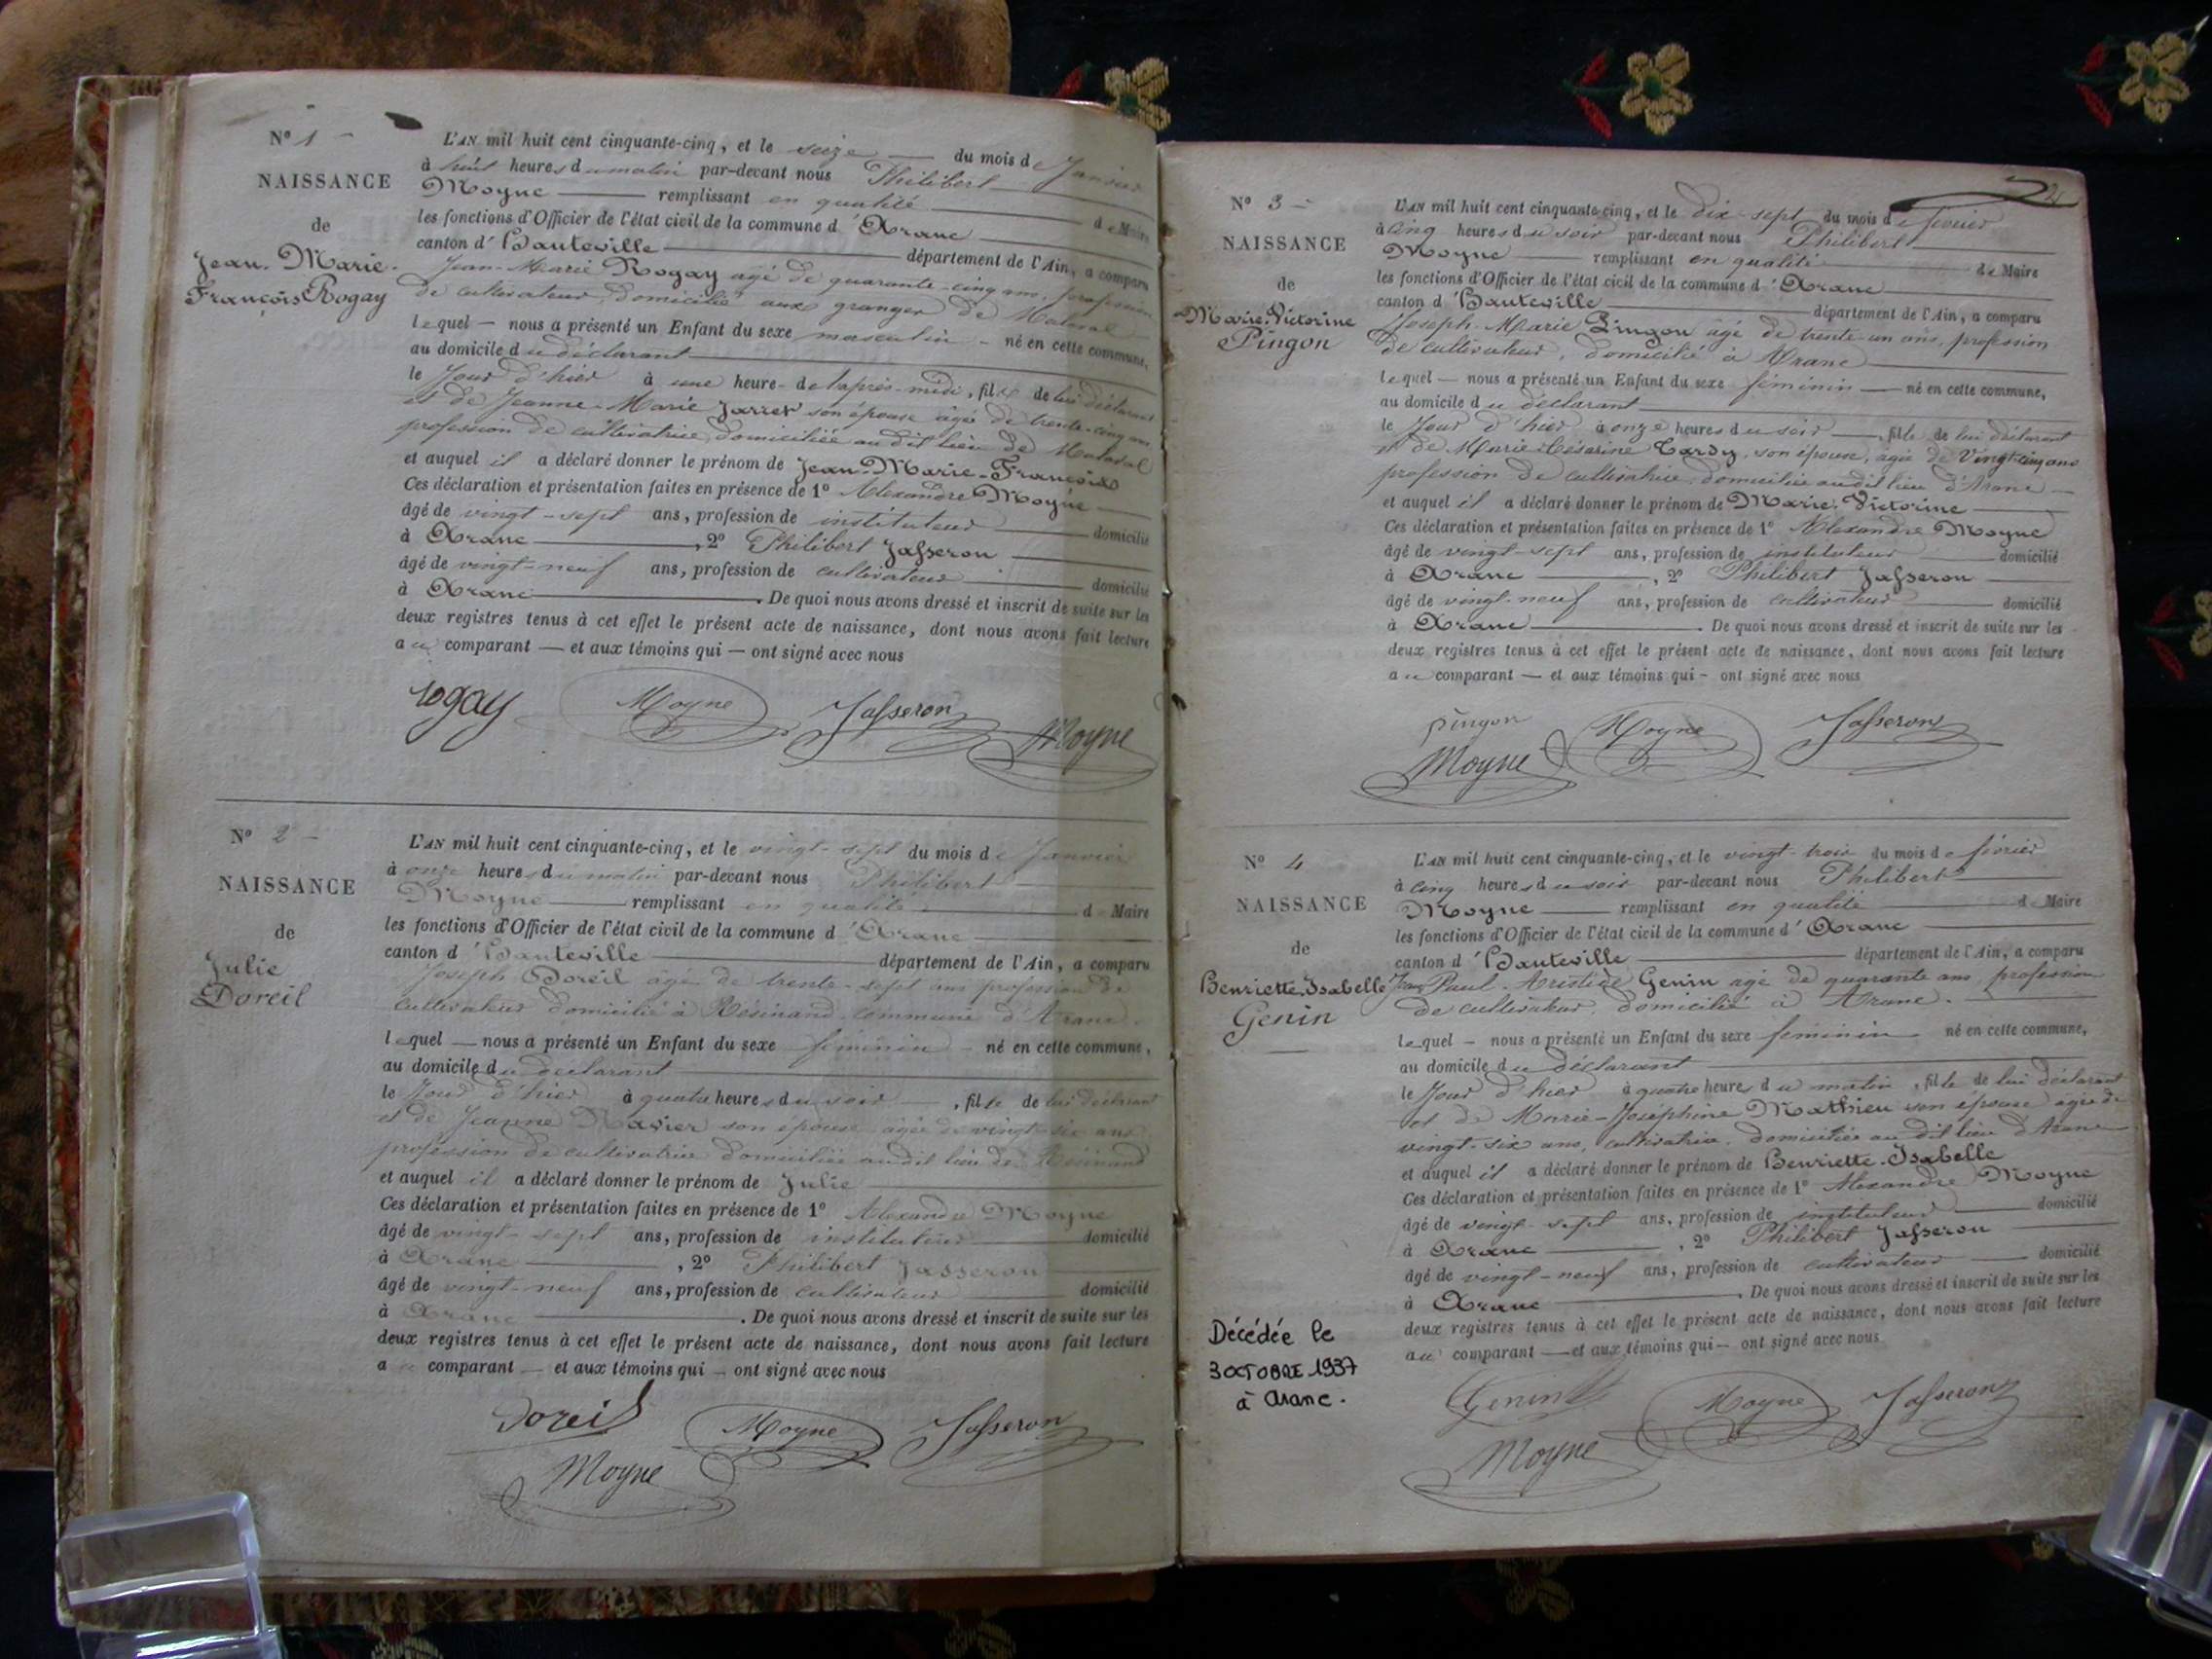 N° 1 -
NAISSANCE
de
Jean-Marie-
François Rogay
L'AN mil huit cent cinquante-cinq, et le seize du mois de Janvier
à huit heures du matin par-devant nous Philibert
Moyne remplissant en qualité de Maire
les fonctions d'Officier de l'état civil de la commune d'Aranc
canton d'Hauteville département de l'Ain, a comparu
Jean-Marie Rogay âgé de quarante-cinq ans, profession
de cultivateur, domicilié aux granges de Malaval
lequel — nous a présenté un Enfant du sexe masculin - né en cette commune,
au domicile du déclarant
le Jour d'hier à une heure de l'après-midi, fils de lui déclarant
et de Jeanne-Marie Jarret son épouse âgée de trente-cinq ans
profession de cultivatrice domiciliée au dit lieu de Malaval
et auquel il a déclaré donner le prénom de Jean-Marie-François
Ces déclaration et présentation faites en présence de 1° Alexandre Moyne
âgé de vingt-sept ans, profession de instituteur domicilié
à Aranc, 2° Philibert Jasseron
âgé de vingt-neuf ans, profession de cultivateur domicilié
à Aranc. De quoi nous avons dressé et inscrit de suite sur les
deux registres tenus à cet effet le présent acte de naissance, dont nous avons fait lecture
au comparant — et aux témoins qui — ont signé avec nous
rogay Moyne Jasseron Moyne
N° 2 -
NAISSANCE
de
Julie
Doreil
L'AN mil huit cent cinquante-cinq, et le vingt-sept du mois de Janvier
à onze heures du matin par-devant nous Philibert
Moyne remplissant en qualité de Maire
les fonctions d'Officier de l'état civil de la commune d'Aranc
canton d'Hauteville département de l'Ain, a comparu
Joseph Doreil âgé de trente-sept ans profession de
cultivateur domicilié à Résinand commune d'Aranc.
lequel — nous a présenté un Enfant du sexe féminin - né en cette commune,
au domicile du déclarant
le Jour d'hier à quatre heures du soir, fille de lui déclarant
et de Jeanne Navier son épouse âgée de vingt-six ans
profession de cultivatrice domiciliée audit lieu de Résinand
et auquel il a déclaré donner le prénom de Julie
Ces déclaration et présentation faites en présence de 1° Alexandre Moyne
âgé de vingt-sept ans, profession de instituteur domicilié
à Aranc, 2° Philibert Jasseron
âgé de vingt-neuf ans, profession de cultivateur domicilié
à Aranc. De quoi nous avons dressé et inscrit de suite sur les
deux registres tenus à cet effet le présent acte de naissance, dont nous avons fait lecture
au comparant — et aux témoins qui — ont signé avec nous
Doreil Moyne Jasseron
Moyne
2
N° 3 -
NAISSANCE
de
Marie-Victorine
Pingon
L'AN mil huit cent cinquante-cinq, et le dix-sept du mois de février
à cinq heures du soir par-devant nous Philibert
Moyne remplissant en qualité de Maire
les fonctions d'Officier de l'état civil de la commune d'Aranc
canton d'Hauteville département de l'Ain, a comparu
Joseph-Marie Pingon âgé de trente-un ans, profession
de cultivateur, domicilié à Aranc
lequel — nous a présenté un Enfant du sexe féminin — né en cette commune,
au domicile du déclarant
le Jour d'hier à onze heures du soir, fille de lui déclarant
et de Marie-Césarine Tardy, son épouse, âgée de Vingt-cinq ans
profession de cultivatrice, domiciliée au dit lieu d'Aranc
et auquel il a déclaré donner le prénom de Marie-Victorine
Ces déclaration et présentation faites en présence de 1° Alexandre Moyne
âgé de vingt-sept ans, profession de instituteur domicilié
à Aranc, 2° Philibert Jasseron
âgé de vingt-neuf ans, profession de cultivateur domicilié
à Aranc. De quoi nous avons dressé et inscrit de suite sur les
deux registres tenus à cet effet le présent acte de naissance, dont nous avons fait lecture
au comparant — et aux témoins qui - ont signé avec nous
pingon Moyne Jasseron
Moyne
N° 4
NAISSANCE
de
Henriette-Isabelle
Genin
L'AN mil huit cent cinquante-cinq, et le vingt-trois du mois de février
à cinq heures du soir par-devant nous Philibert
Moyne remplissant en qualité de Maire
les fonctions d'Officier de l'état civil de la commune d'Aranc
canton d'Hauteville département de l'Ain, a comparu
Jean Paul-Aristide Genin âgé de quarante ans, profession
de cultivateur, domicilié à Aranc.
lequel — nous a présenté un Enfant du sexe féminin né en cette commune,
au domicile du déclarant
le Jour d'hier à quatre heures du matin, fille de lui déclarant
et de Marie-Josephine Mathieu son épouse âgée de
vingt-six ans, cultivatrice, domiciliée au dit lieu d'Aranc
et auquel il a déclaré donner le prénom de Henriette-Isabelle
Ces déclaration et présentation faites en présence de 1° Alexandre Moyne
âgé de vingt-sept ans, profession de instituteur domicilié
à Aranc, 2° Philibert Jasseron
âgé de vingt-neuf ans, profession de cultivateur domicilié
à Aranc. De quoi nous avons dressé et inscrit de suite sur les
deux registres tenus à cet effet le présent acte de naissance, dont nous avons fait lecture
au comparant — et aux témoins qui — ont signé avec nous
Décédée le
3 OCTOBRE 1937
à Aranc.
Genin Moyne Jasseron
Moyne